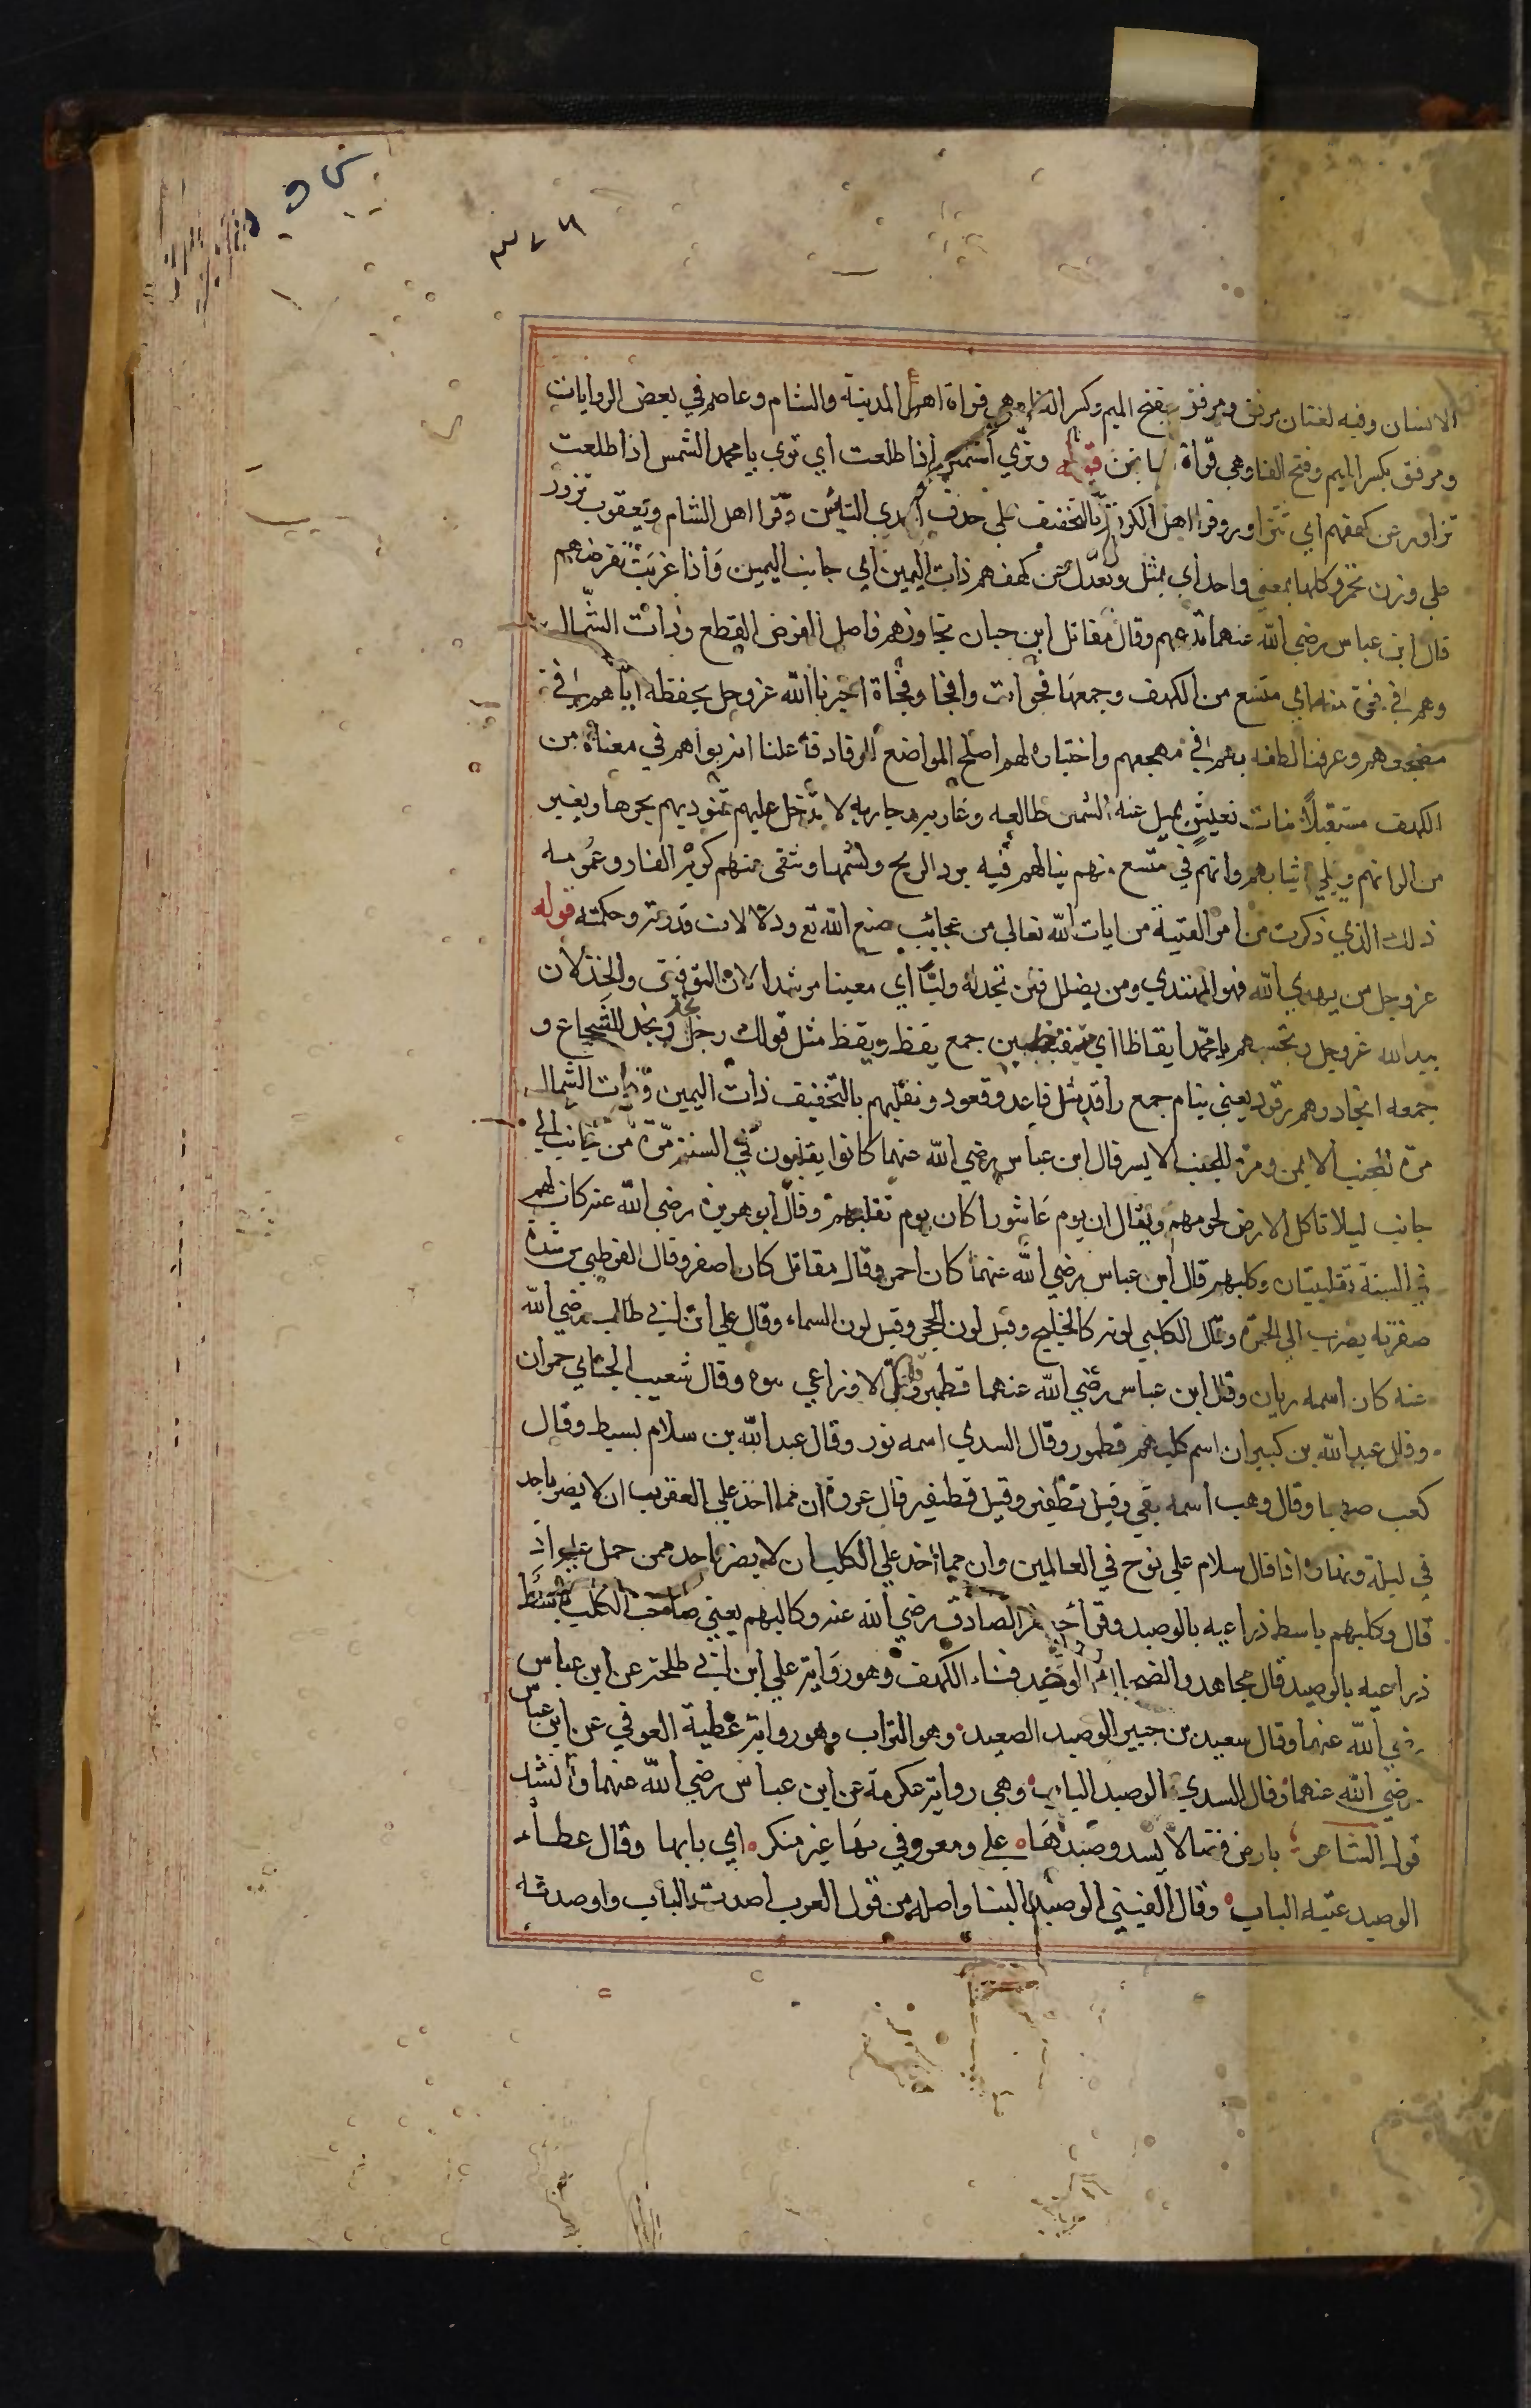 ٣٧٦
الانسان وفيه لغتان مرفق ومرفق بفتح الميم وكسر الفا وهي قراة اهل المدينة والشام وعاصم في بعض الروايات
ومرفق بكسر الميم وفتح الفا وهي قراة الباقين قوله وتري الشمس اذا طلعت اي تري يا محمد الشمس اذا طلعت
تزاور عن كهفهم اي تتزاور وقرا اهل الكوفة بالتخفيف علي حذف احدي التائين وقرا اهل الشام ويعقوب تزور
علي وزن تحمر وكلها بمعني واحد اي تميل وتعدل عن كهفهم ذات اليمين اي جانب اليمين واذا غربت تقرضهم
قال ابن عباس رضي الله عنهما تدعهم وقال مقاتل ابن حيان تجاوزهم فاصل القرض القطع وذات الشمال
وهم في فجوة منه اي متسع من الكهف وجمعها فجوات وافجا وفجاة اخبرنا الله عزوجل بحفظه اياهم في
مضجعهم وعرفنا لطفه بهم في مهجعهم واختياره لهم اصلح المواضع للرقاد فاعلنا انه بواهم في مغناة من
الكهف مستقبلا بنات نعش تميل عنه الشمس طالعه وغاربه وجاريه لا تدخل عليهم فتؤذيهم بحرها وبغير
من الوانهم ويبلي ثيابهم وانهم في متسع منهم ينالهم فيه برد الريح ونسيمها وتنقي عنهم كرب الغار وغمومه
ذلك الذي ذكرت من امر الفتية من ايات الله تعالي من عجائب صنع الله تع ودلالات قدرته وحكمته قوله
عزوجل من يهدي الله فهو المهتدي ومن يضلل فلن تجد له وليا اي معينا مرشدا لان التوفيق والخذلان
بيد الله عزوجل وتحسبهم يا محمد ايقاظا اي متيقظين جمع يقظ ويقظ مثل قولك رجل نجد ونجد للشجاع و
جمعه انجاد وهم رقود يعني نيام جمع راقد مثل قاعد وقعود ونقلبهم بالتخفيف ذات اليمين وذات الشمال
مرة للجنب الايمن ومرة للجنب الايسر قال ابن عباس رضي الله عنهما كانوا يقلبون في السنة مرة من جانب الي
جانب ليلا تاكل الارض لحومهم ويقال ان يوم عاشورا كان يوم تقلبهم وقال ابو هريرة رضي الله عنه كان لهم
في السنة تقليبتان وكلبهم قال ابن عباس رضي الله عنهما كان احمر وقال مقاتل كان اصفر وقال القرظبي من شدة
صفرته يضرب الي الحمرة وقال الكلبي لونه كالخليج وقيل لون الحجر وقيل لون السماء وقال علي ابن ابي طالب رضي الله
عنه كان اسمه ريان وقال ابن عباس رضي الله عنهما قطمير وقال الاوزاعي وقال شعيب الجبائي حمران
وقال عبد الله بن كبير ان اسم كلبهم قطمور وقال السدي اسمه نور وقال عبد الله بن سلام بسيط وقال
كعب صهبا وقال وهب اسمه بقي وقيل قطفير وقيل قطيفير قال عروة ان مما اخذ علي العقرب ان لا يضر باحد
في ليلة ونهار اذا قال سلام علي نوح في العالمين وان مما اخذ علي الكلب ان لا يضر باحد ممن حمل عليه اذ
قال وكلبهم باسط ذراعيه بالوصيد وقرا جعفر الصادق رضي الله عنه وكالبهم يعني صاحب الكلب باسط
ذراعيه بالوصيد قال مجاهد والضحاك الوصيد فناء الكهف وهو رواية علي ابن ابي طلحة عن ابن عباس
رضي الله عنهما وقال سعيد بن جبير الوصيد الصعيد وهو التراب وهو رواية عطية العوفي عن ابن عباس
رضي الله عنهما وقال السدي الوصيد الباب وهي رواية عكرمة عن ابن عباس رضي الله عنهما وانشد
قول الشاعر بارض فضا لا يسد وصيدها علي ومعروفي بها غير منكر اي بابها وقال عطاء
الوصيد عتبه الباب وقال القيني الوصيد البنا واصله من قول العرب اصدت الباب واوصدته